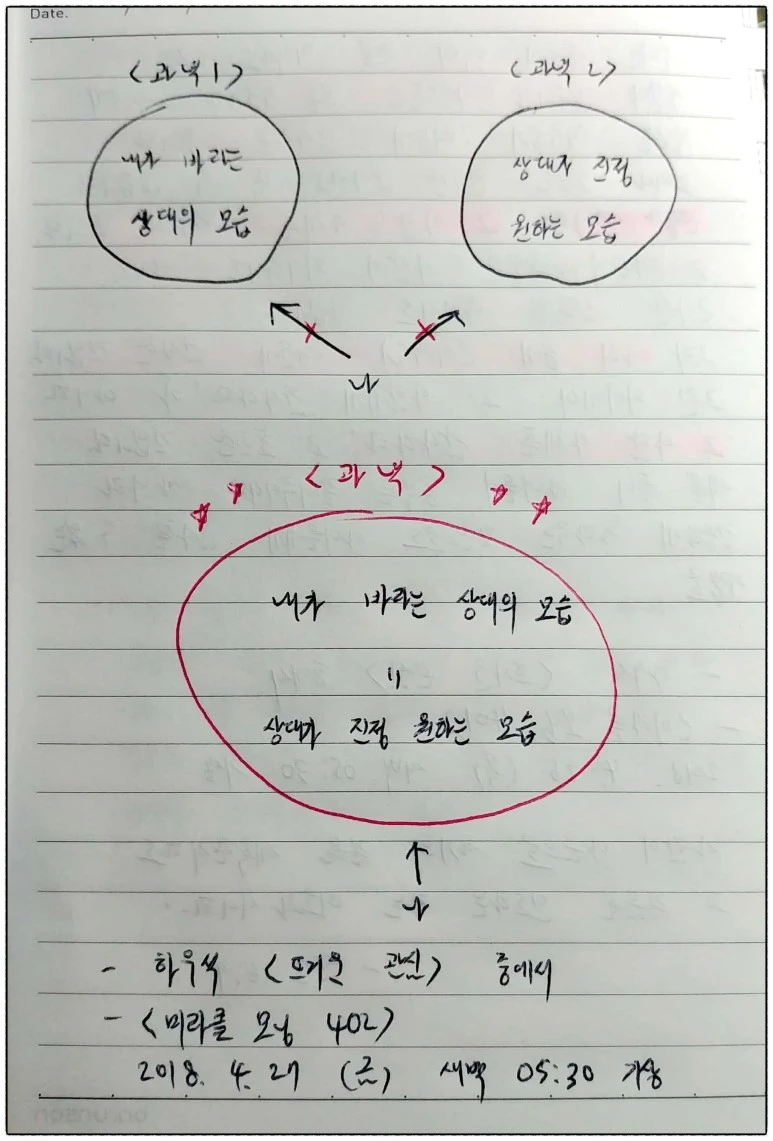 Date.
<과녁 1>
<과녁 2>
내가 바라는
상대의 모습
상대가 진정
원하는 모습
나
<과녁>
내가 바라는 상대의 모습
=
상대가 진정 원하는 모습
나
- 하우석 <뜨거운 관심> 중에서
- <미라클 모닝 402>
2018. 4. 27 (금) 새벽 05:30 기상